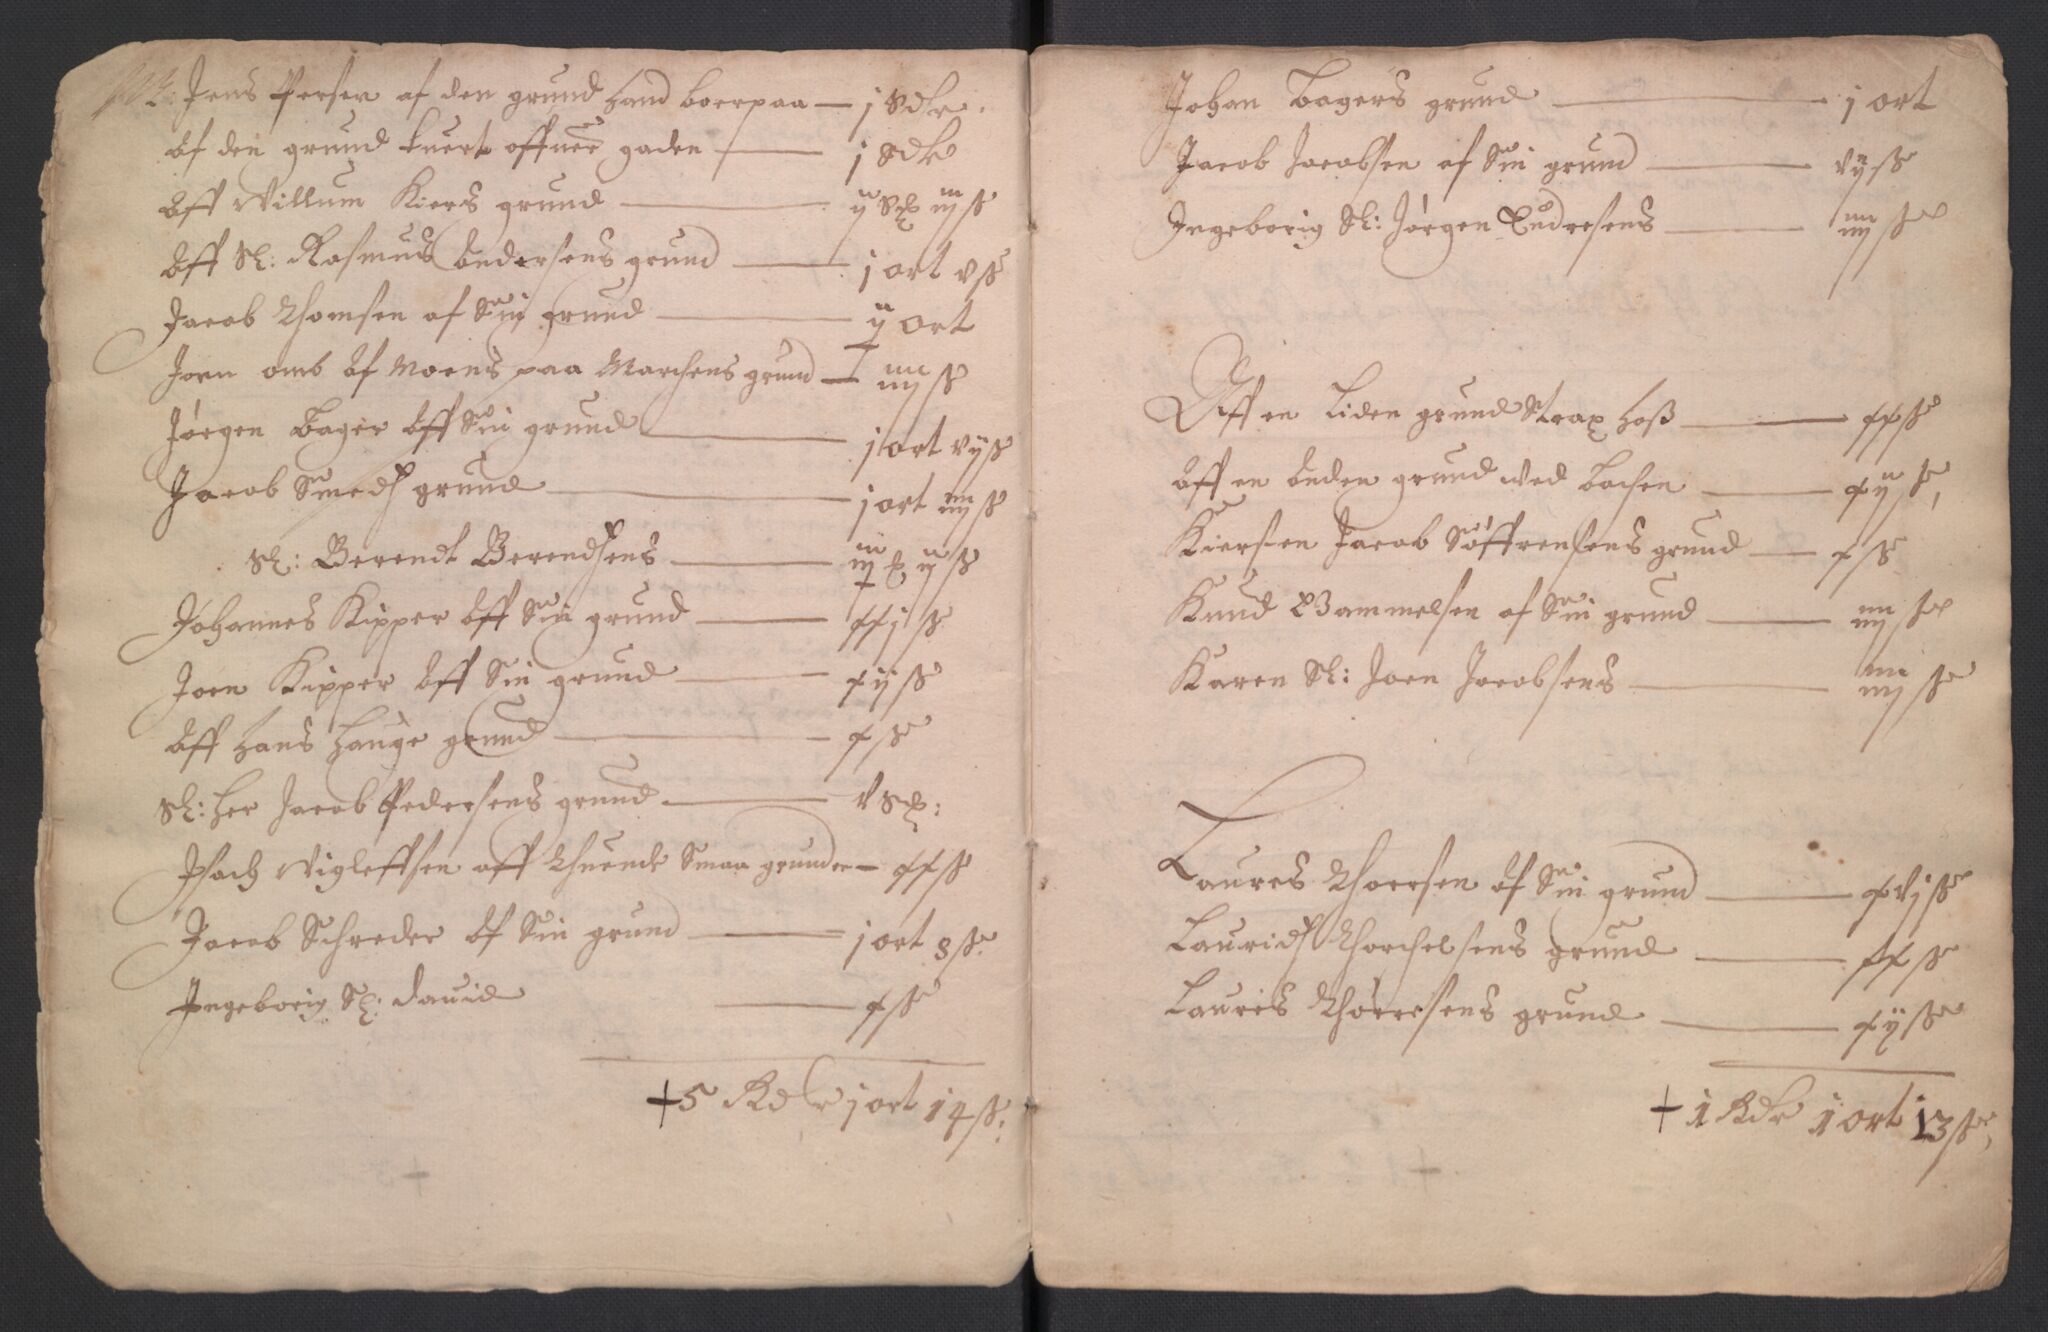 Jens Persen af den grund hand boer paa — j Rdlr.
Af den grund tuert offuer gaden — j Rdlr
Aff Villum Kiers grund — ij Mk iiij ß
Aff Sl: Rasmus Andersens grund — j ort v ß
Jacob Thomsen af Sin grund — ij ort
Joen omb Af Moens paa Marchens grund — iiij ß
Jørgen Bager Aff Sin grund — j ort vij ß
Jacob Smeds grund — j ort iiij ß
Sl: Berendt Berendsens — iij Mk ij ß
Johannes Kipper Aff Sin grund — xxj ß
Joen Kipper Aff Sin grund — xij ß
Aff Hans Hauge grund — x ß
Sl: Her Jacob Pedersens grund — v Mk:
Isach Vigleffsen aff thuende Smaa grunder — xx ß
Jacob Schreder Af Sin grund — j ort 8 ß.
Ingeborig Sl: Dauid — x ß
+ 5 Rdlr j ort 14 ß:
Johan Bagers grund — j ort
Jacob Jacobsen af Sin grund — vij ß
Ingeborig Sl: Jørgen Endresens — iiij ß
Aff en Liden grund Strax hoß — xx ß
Aff en Anden grund Ved Bachen — xij ß,
Kiersten Jacob Søffrensens grund — x ß
Knud Gammelsen af Sin grund — iiij ß
Karen Sl: Joen Jacobsens — iiij ß
Laures Thoersen Af Sin grund — xvj ß
Laurids Thorchelsens grund — xx ß
Lauris Thoersens grund — xij ß
+ 1 Rdlr 1 ort 13 ß,